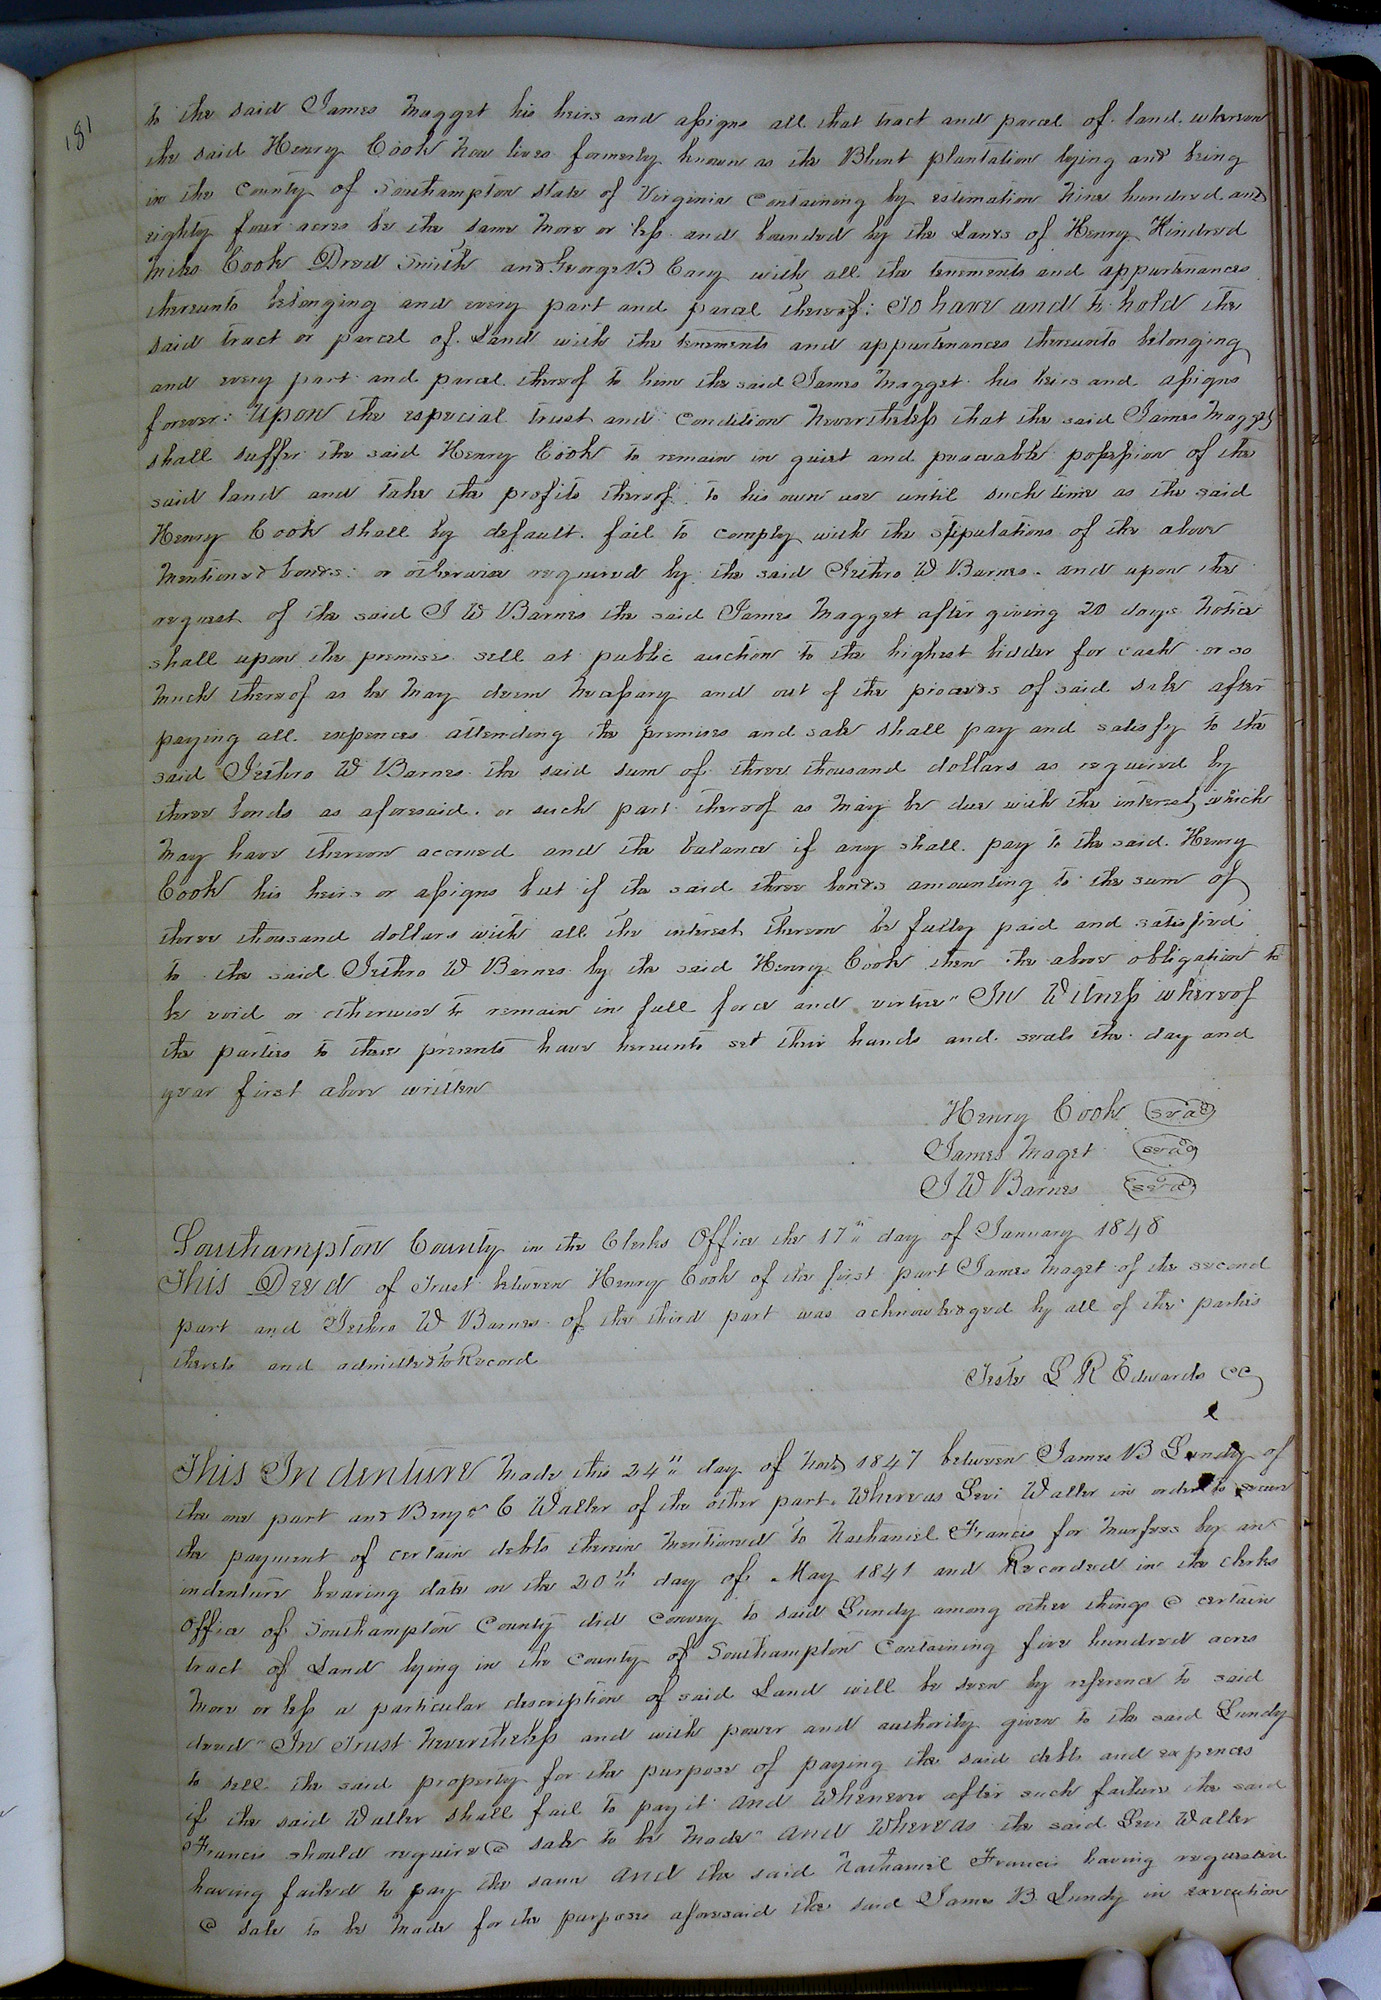 181
to the said James Magget his heirs and assigns all that tract and parcel of land whereon
the said Henry Cook now lives formerly known as the Blunt plantation lying and being
in the County of Southampton state of Virginia Containing by estimation nine hundred and
eighty four acres be the same more or less and bounded by the Lands of Henry Kindred
Miles Cook Drew Smith and George B Cary with all the tenements and appurtenances
thereunto belonging and every part and parcel thereof: To have and to hold the
said tract or parcel of Land with the tenements and appurtenances thereunto belonging
and every part and parcel thereof to him the said James Magget his heirs and assigns
forever: Upon the especial trust and Condition Nevertheless that the said James Magget
shall suffer the said Henry Cook to remain in quiet and peaceable possession of the
said land and take the profits thereof to his own use until such time as the said
Henry Cook shall by default fail to comply with the stipulations of the above
mentioned bonds: or otherwise required by the said Jethro W Barnes and upon the
request of the said J W Barnes the said James Magget after giving 20 days notice
shall upon the premises sell at public auction to the highest bidder for cash or so
much thereof as he may deem necessary and out of the proceeds of said sale after
paying all expences attending the premises and sale shall pay and satisfy to the
said Jethro W Barnes the said sum of three thousand dollars as required by
three bonds as aforesaid or such part thereof as may be due with the interest which
may have thereon accrued and the balance if any shall pay to the said Henry
Cook his heirs or assigns but if the said three bonds amounting to the sum of
three thousand dollars with all the interest thereon be fully paid and satisfied
to the said Jethro W Barnes by the said Henry Cook then the above obligation to
be void or otherwise to remain in full force and virtue" In Witness whereof
the parties to these presents have hereunto set their hands and seals the day and
year first above written
Henry Cook (seal)
James Maget (seal)
J W Barnes (seal)
Southampton County in the Clerks Office the 17" day of January 1848
This Deed of Trust between Henry Cook of the first part James Maget of the second
part and Jethro W Barnes of the third part was acknowledged by all of the parties
thereto and admitted to Record
Teste L R Edwards CC
This Indenture made this 24" day of Novr 1847 between James B Lundy of
the one part and Benjn C Waller of the other part. Whereas Levi Waller in order to secure
the payment of certain debts therein mentioned to Nathaniel Francis for Murfees by an
indenture bearing date on the 20th day of May 1841 and Recorded in the clerks
Office of Southampton County did convey to said Lundy among other things a certain
tract of Land lying in the County of Southampton Containing five hundred acres
more or less a particular description of said Land will be seen by reference to said
deed" In Trust Nevertheless and with power and authority given to the said Lundy
to sell the said property for the purpose of paying the said debts and expences
if the said Waller shall fail to pay it and Whenever after such failure the said
Francis should require a sale to be made" And Whereas the said Levi Waller
having failed to pay the same and the said Nathaniel Francis having requested
a sale to be made for the purposes aforesaid the said James B. Lundy in execution